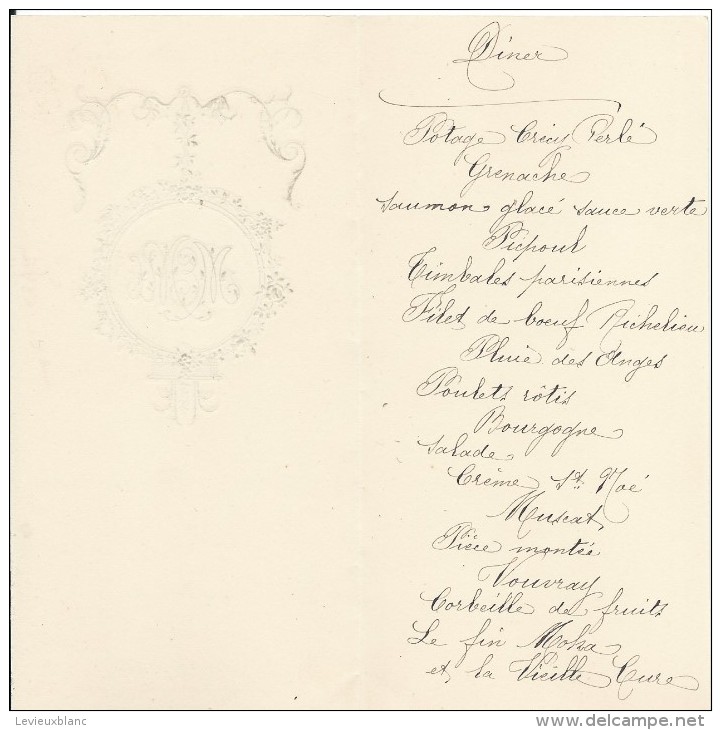 Dîner
Potage Crécy Perlé
Grenache
Saumon glacé sauce verte
Picpoul
Timbales parisiennes
Filet de boeuf Richelieu
Pluie des Anges
Poulets rôtis
Bourgogne
Salade
Crème St Noé
Muscat
Pièce montée
Vouvray
Corbeille de fruits
Le fin Moka
et la Vieille Cure
©Levieuxblanc
www.delcampe.net